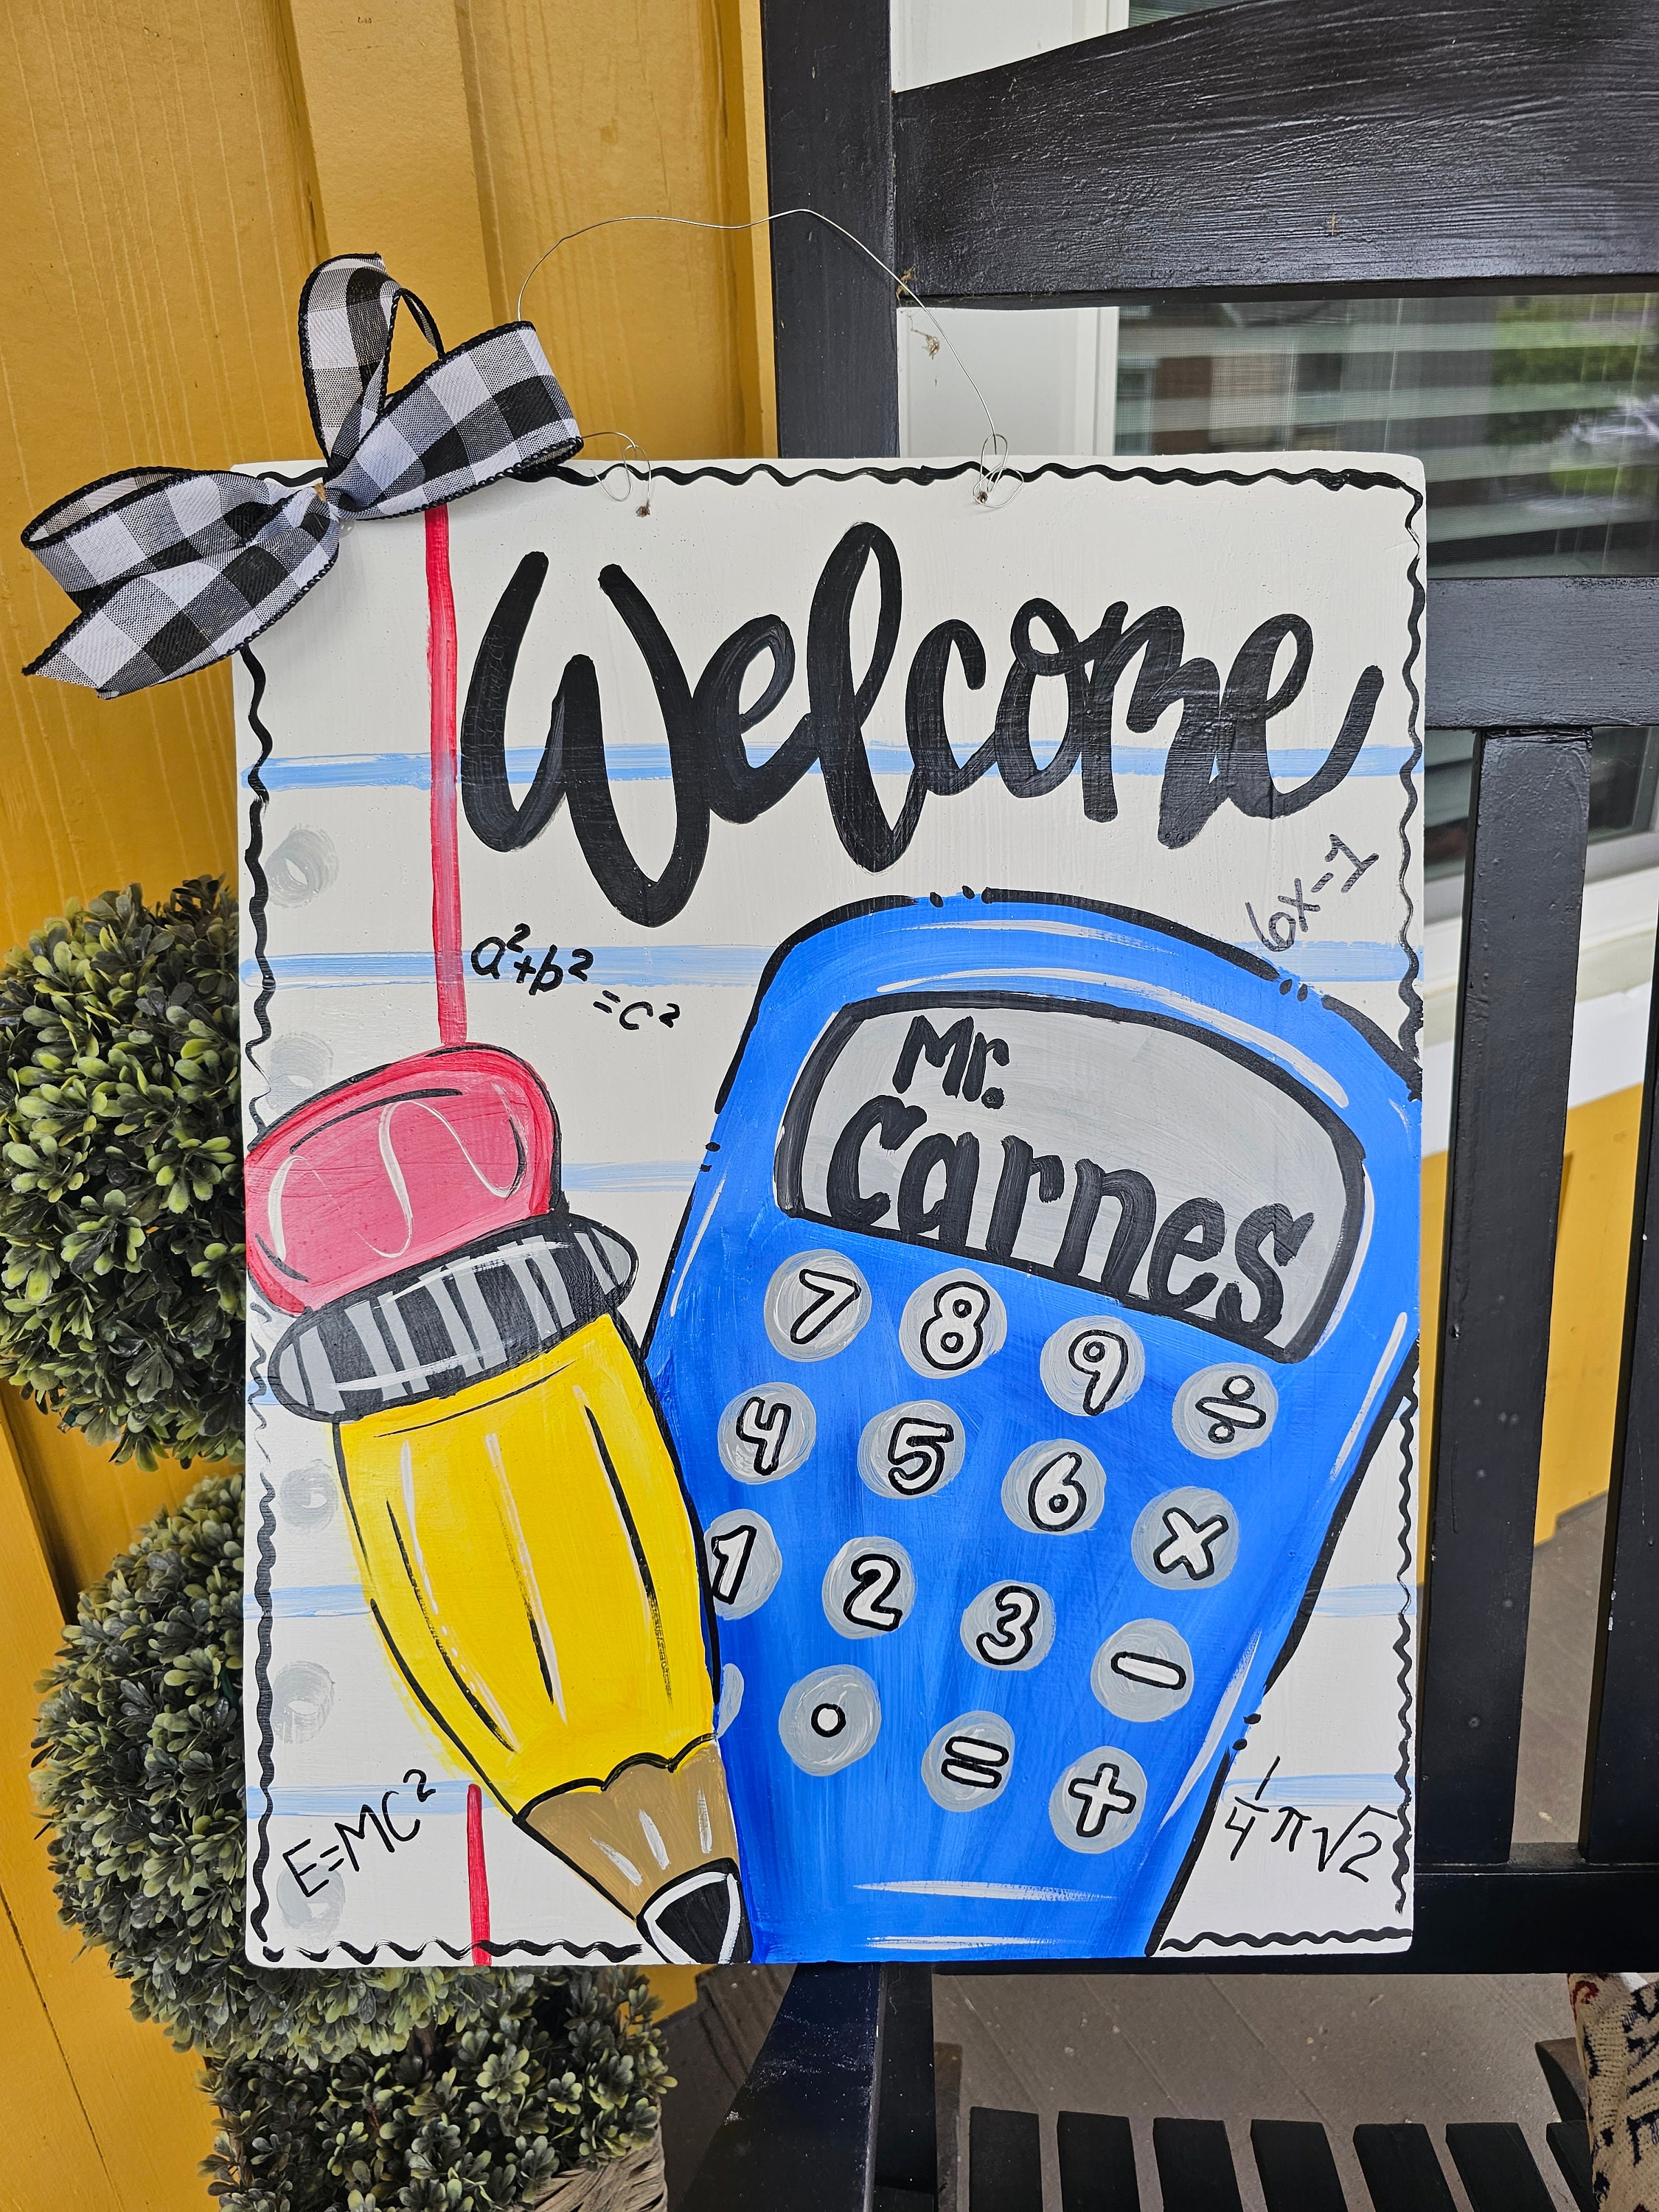 Welcome
6x-1
a²+b²
=c²
Mr.
Carnes
7 8 9 ÷
4 5 6 ×
1 2 3 −
. = +
E=MC²
1/4 π√2